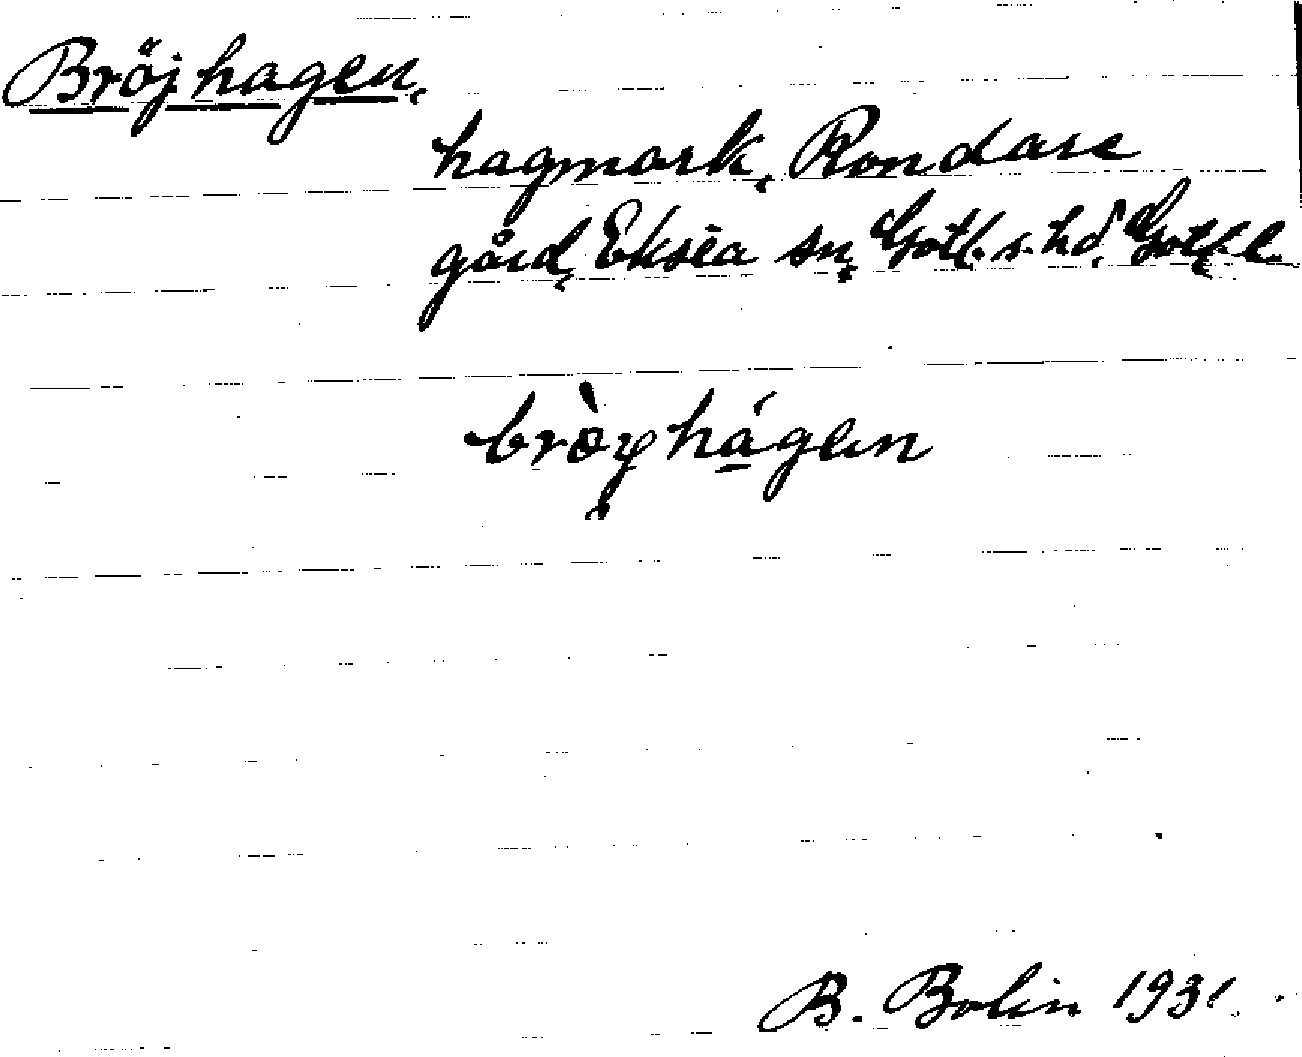 Bröjhagen,
hagmark, Rondare
gård, Eksta sn, Gotl. s. hd, Gotl. l.
bròyhágen
B. Bolin 1931.